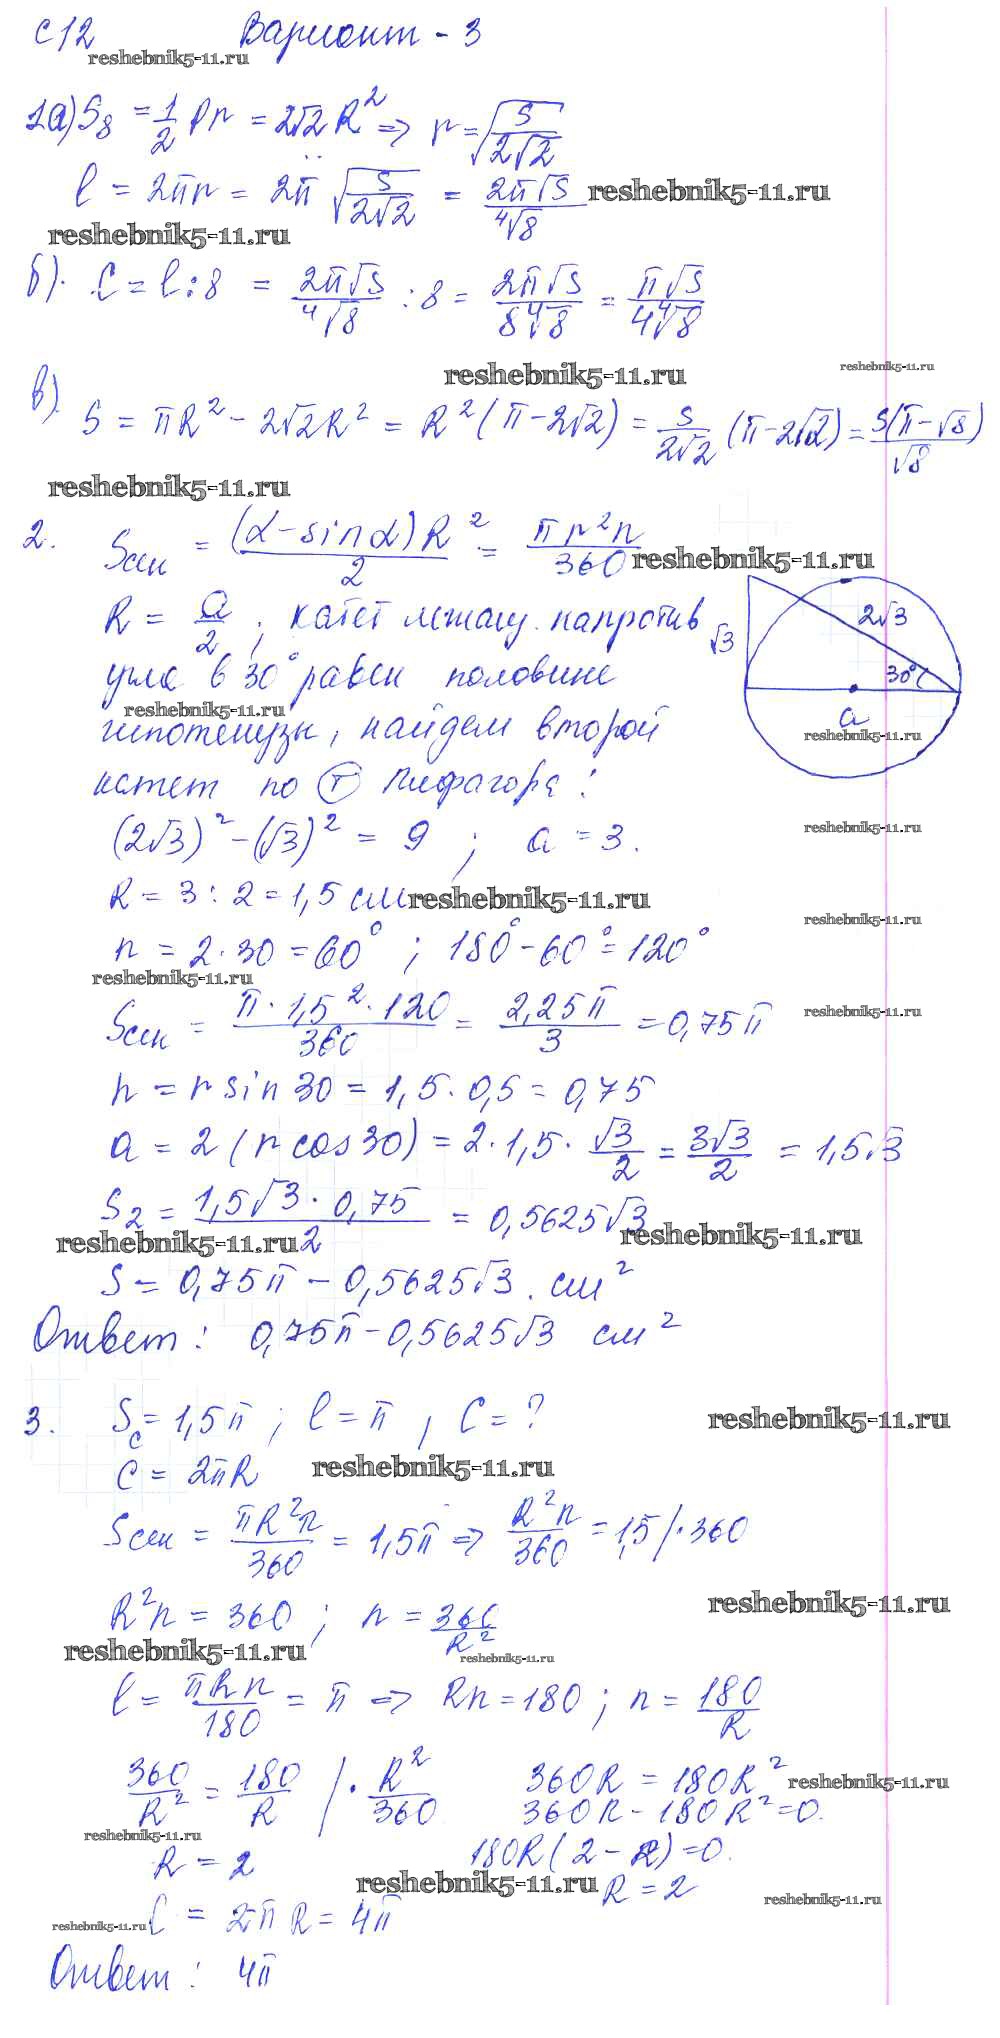 С12 Вариант - 3
reshebnik5-11.ru
1а) S₈ = 1/2 Pr = 2√2 R² => r = √(S/(2√2))
l = 2πr = 2π √(S/(2√2)) = 2π√S/⁴√8 reshebnik5-11.ru
reshebnik5-11.ru
б). C = l : 8 = 2π√S/⁴√8 : 8 = 2π√S/(8⁴√8) = π√S/(4⁴√8)
reshebnik5-11.ru reshebnik5-11.ru
в). S = πR² - 2√2R² = R²(π - 2√2) = S/(2√2) (π - 2√2) = S(π - √8)/√8
reshebnik5-11.ru
2. Sсек = (α - sinα)R²/2 = πr²n/360 reshebnik5-11.ru
R = a/2 ; катет лежащ. напротив
угла в 30° равен половине
reshebnik5-11.ru
гипотенузы, найдем второй
катет по Т Пифагора:
√3 2√3 30° a
reshebnik5-11.ru
(2√3)² - (√3)² = 9 ; a = 3.
reshebnik5-11.ru
R = 3 : 2 = 1,5 см reshebnik5-11.ru
reshebnik5-11.ru
n = 2 · 30 = 60° ; 180° - 60° = 120°
reshebnik5-11.ru
Sсек = π · 1,5² · 120/360 = 2,25π/3 = 0,75π
reshebnik5-11.ru
h = r sin 30 = 1,5 · 0,5 = 0,75
a = 2 (r cos 30) = 2 · 1,5 · √3/2 = 3√3/2 = 1,5√3
S₂ = 1,5√3 · 0,75/2 = 0,5625√3
reshebnik5-11.ru reshebnik5-11.ru
S = 0,75π - 0,5625√3. см²
Ответ: 0,75π - 0,5625√3 см²
3. Sс = 1,5π ; l = π , C = ?
reshebnik5-11.ru
C = 2πR reshebnik5-11.ru
Sсек = πR²n/360 = 1,5π => R²n/360 = 1,5 / · 360
R²n = 360 ; n = 360/R²
reshebnik5-11.ru
reshebnik5-11.ru reshebnik5-11.ru
l = πRn/180 = π => Rn = 180 ; n = 180/R
360/R² = 180/R / · R²/360 360R = 180R²
reshebnik5-11.ru
360R - 180R² = 0.
reshebnik5-11.ru
R = 2 180R(2 - R) = 0.
reshebnik5-11.ru R = 2
reshebnik5-11.ru
reshebnik5-11.ru C = 2π R = 4π
Ответ: 4π